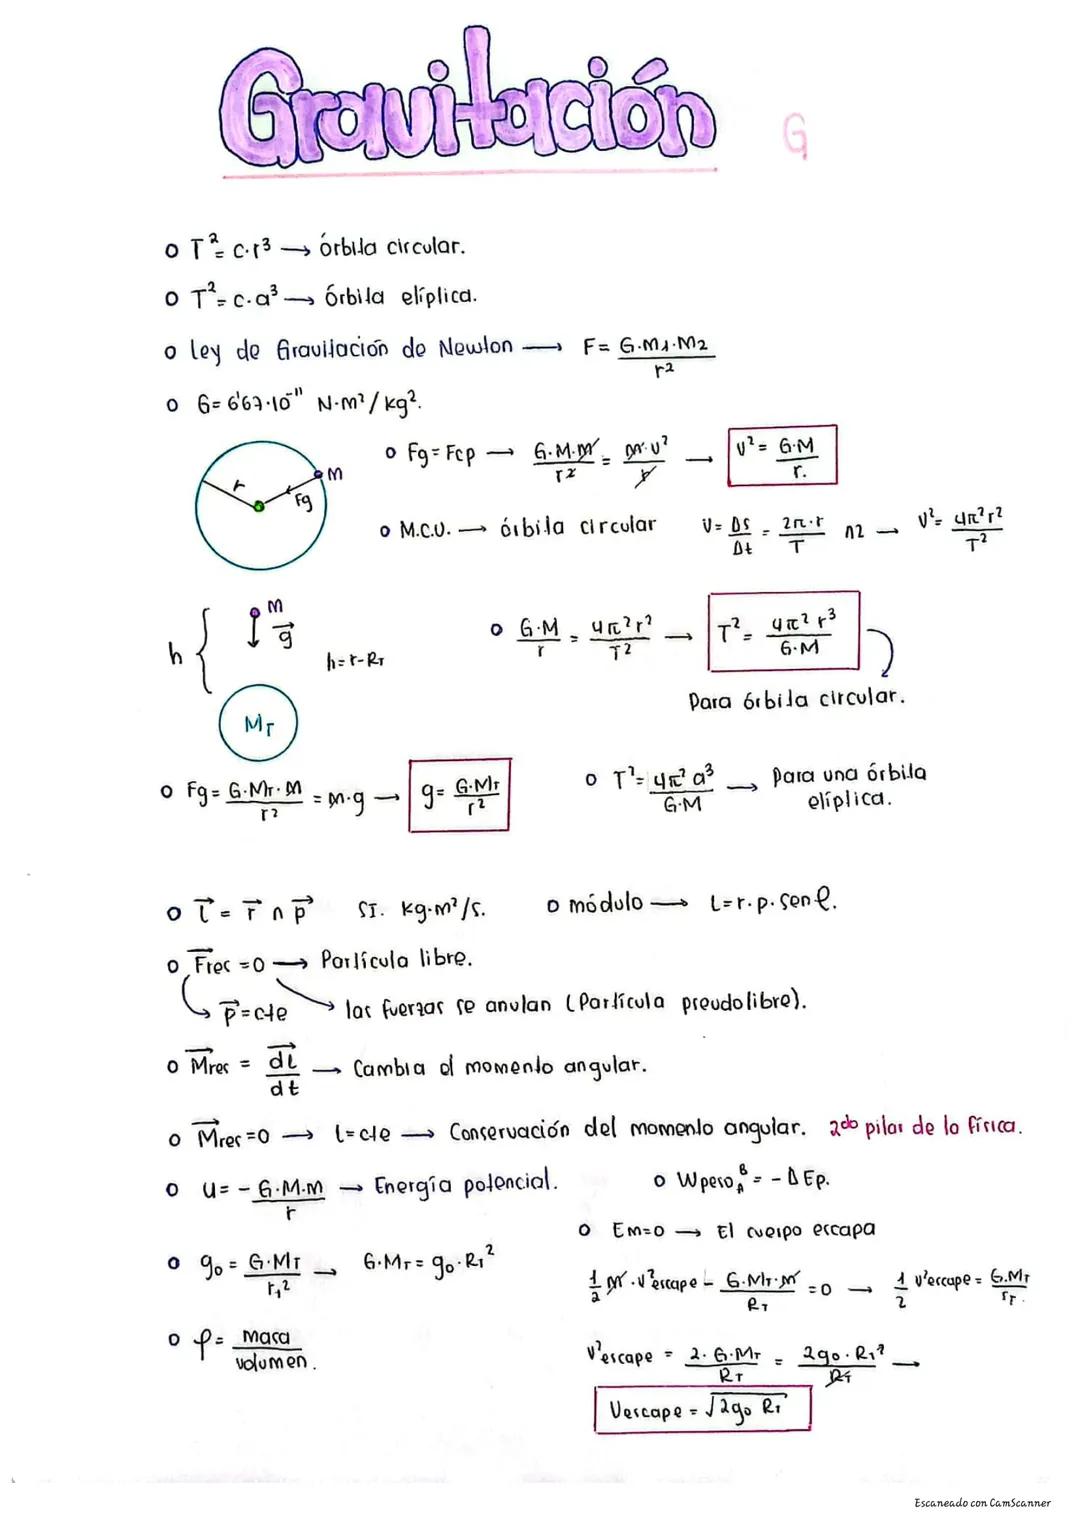 Gravitación G
o T² = c·r³ → órbita circular.
o T² = c·a³ → órbita elíptica.
o ley de Gravitación de Newton → F = G·M1·M2 / r²
o G = 6'67·10⁻¹¹ N·m²/kg².
r Fg m
o Fg = Fcp → G·M·m / r² = m·v² / r → v² = G·M / r.
o M.C.U. → órbita circular v = Δs / Δt = 2π·r / T ∧2 → v² = 4π²r² / T²
h { m g⃗ h = r - RT
MT
o G·M / r = 4π²r² / T² → T² = 4π² r³ / G·M
Para órbita circular.
o Fg = G·MT·m / r² = m·g → g = G·MT / r²
o T² = 4π² a³ / G·M → Para una órbita
elíptica.
o L⃗ = r⃗ ∧ p⃗ SI. kg·m²/s. o módulo → L = r·p·sen φ.
o F⃗res = 0 → Partícula libre.
p⃗ = cte → las fuerzas se anulan (Partícula pseudolibre).
o M⃗res = dL⃗ / dt → Cambia el momento angular.
o M⃗res = 0 → L = cte → Conservación del momento angular. 2do pilar de la física.
o U = - G·M·m / r → Energía potencial. o Wpeso A B = - ΔEp.
o Em = 0 → El cuerpo escapa
o g₀ = G·MT / rT² → G·MT = g₀·RT²
1/2 m·v²escape - G·MT·m / RT = 0 → 1/2 v²escape = G·MT / rT.
o ρ = masa / volumen.
v²escape = 2·G·MT / RT = 2g₀·RT² / RT →
Vescape = √2g₀ RT
Escaneado con CamScanner